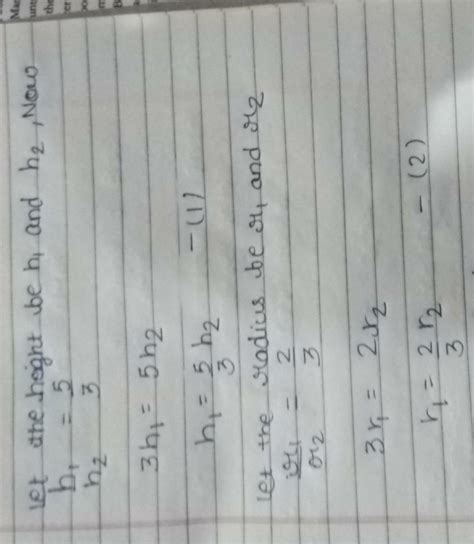 Let the height be h₁ and h₂, Now
h₁/h₂ = 5/3
3h₁ = 5h₂
h₁ = 5/3 h₂ - (1)
Let the radius be r₁ and r₂
r₁/r₂ = 2/3
3r₁ = 2r₂
r₁ = 2r₂/3 - (2)